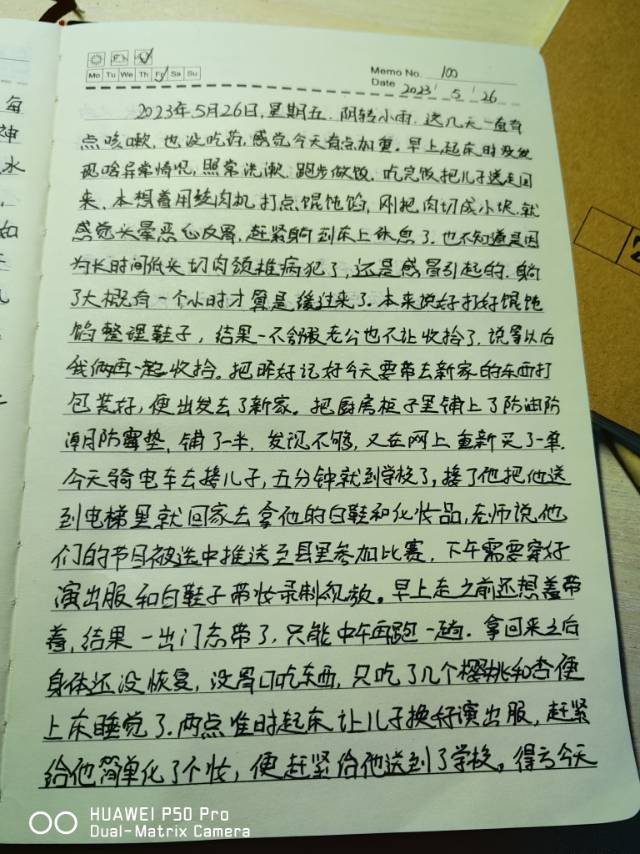 Mo Tu We Th Fr Sa Su
Memo No. 100
Date 2023 / 5 / 26
2023年5月26日,星期五.阴转小雨.这几天一直有
点咳嗽,也没吃药,感觉今天有点加重.早上起床时没发
现啥异常情况,照常洗漱.跑步做饭.吃完饭把儿子送走回
来,本想着用绞肉机打点馄饨馅,刚把肉切成小块.就
感觉头晕恶心反胃,赶紧躺到床上休息了.也不知道是因
为长时间低头切肉颈椎病犯了,还是感冒引起的.躺
了大概有一个小时才算是缓过来了.本来说好打好馄饨
馅整理鞋子,结果一不舒服老公也不让收拾了,说等以后
我俩再一起收拾。把昨好记好今天要带去新家的东西打
包装好,便出发去了新家。把厨房柜子里铺上了防油防
潮防霉垫,铺了一半,发现不够,又在网上重新买了一单.
今天骑电车去接儿子,五分钟就到学校了,接了他把他送
到电梯里就回家去拿他的白鞋和化妆品,老师说他
们的节目被选中推送至县里参加比赛,下午需要穿好
演出服和白鞋子带妆录制视频。早上走之前还想着带
着,结果一出门忘带了,只能中午再跑一趟.拿回来之后
身体还没恢复,没胃口吃东西,只吃了几个樱桃和杏便
上床睡觉了.两点准时起床让儿子换好演出服,赶紧
给他简单化了个妆,便赶紧给他送到了学校。得亏今天
HUAWEI P50 Pro
Dual-Matrix Camera